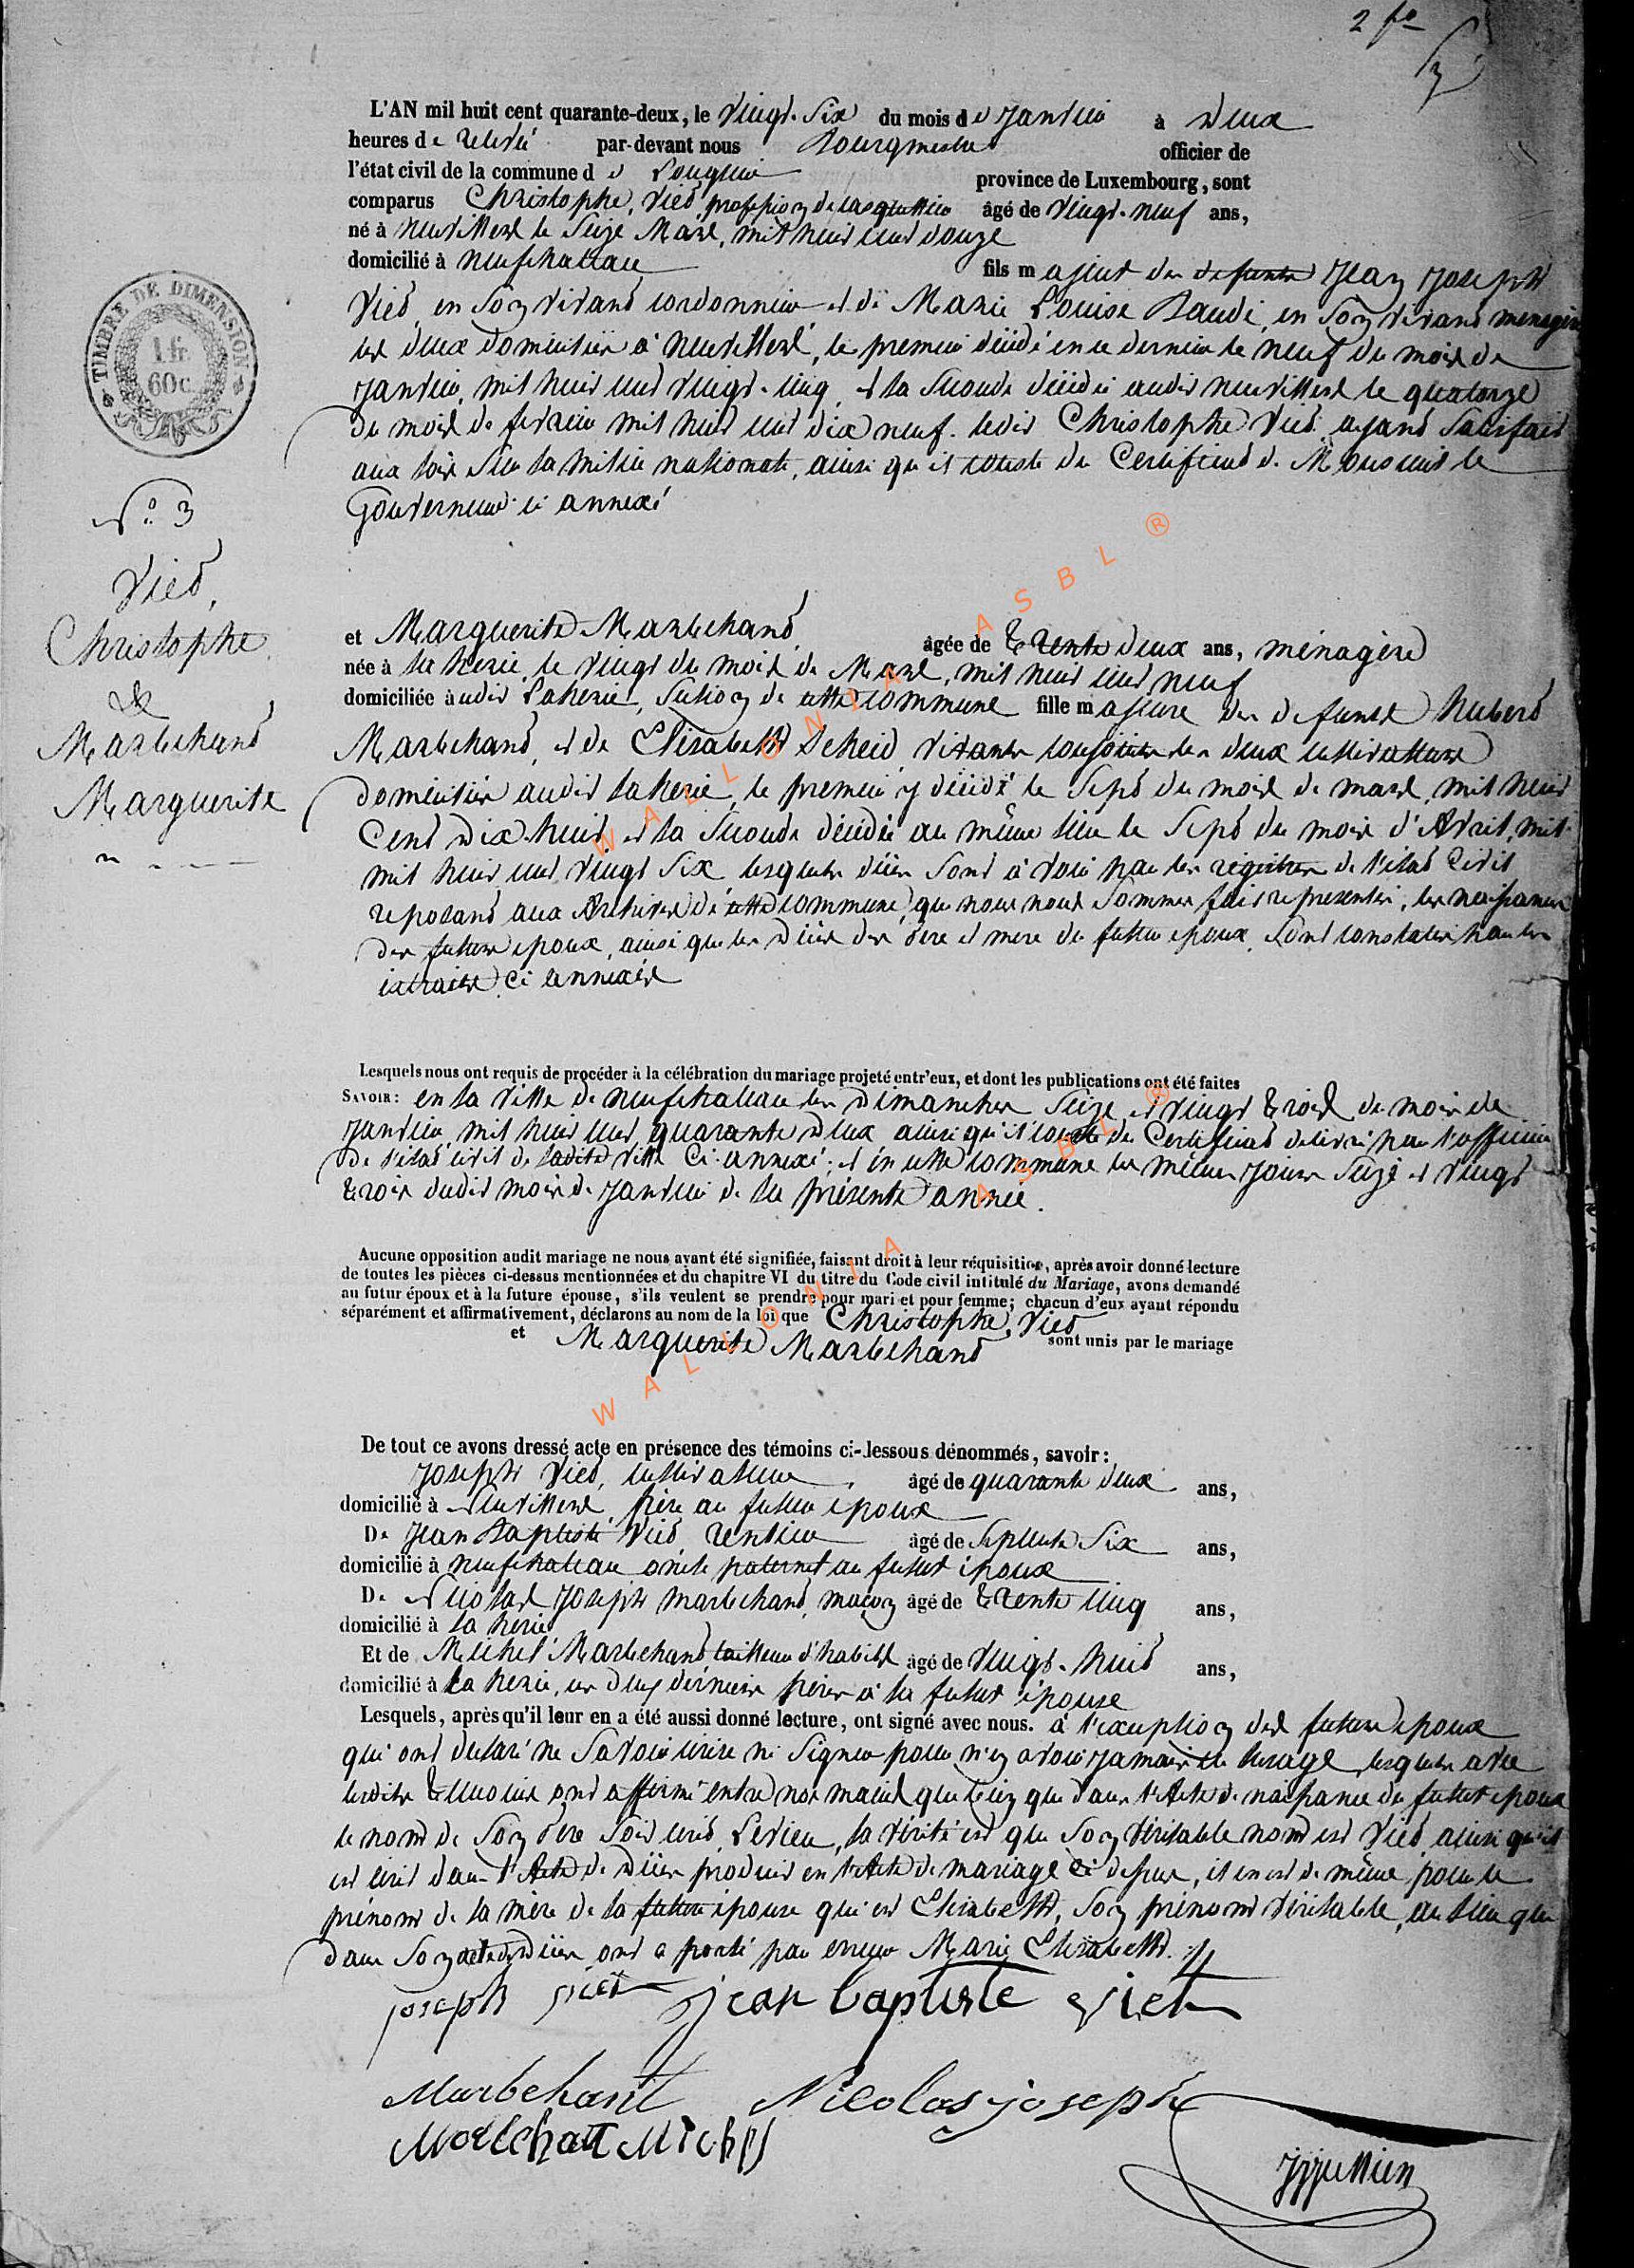 2 fo
3
L'AN mil huit cent quarante-deux, le Vingt-Six du mois de Janvier à Deux
heures de relevé par-devant nous Bourgmestre officier de
l'état civil de la commune de Longlier province de Luxembourg, sont
comparus Christophe, Viet, profession de casquettier âgé de vingt-neuf ans,
né à Neuvillers le Seize Mars, mil huit cent douze
domicilié à Neufchateau fils majeur des defunts Jean Joseph
Viet, en Son vivant cordonnier et de Marie Louise Baudé, en Son vivant menagère
les deux domiciliés à Neuvillers, le premier décédé en ce dernier le neuf du mois de
Janvier, mil huit cent vingt-cinq, et la Seconde décédée audit Neuvillers le quatorze
du mois de fevrier mil huit cent dix neuf. ledit Christophe Viet ayant Satisfait
aux lois Sur la milice nationale, ainsi qu'il conste du Certificat de Monsieur le
Gouverneur ci annexé
TIMBRE DE DIMENSION
1 fr.
60 c.
N° 3
Viet,
Christophe
&
Marbehand
Marguerite
et Marguerite Marbehand âgée de trente deux ans, ménagère
née à la herie, le vingt du mois de Mars, mil huit cent neuf
domiciliée audit Laherie, Section de cette commune fille majeure des defunts Hubert
Marbehand, et de Elisabeth Scheid, vivants conjoints les deux cultivateurs
domiciliés audit laherie, le premier y décédé le Sept du mois de mars, mil huit
Cent Dix-huit, et la Seconde décédée au même lieu le Sept du mois d'Avril, mil
mil huit cent vingt Six lesquels décès Sont à voir par les régistres de l'état Civil
reposant aux Archives de cette commune, que nous nous Sommes fait representer, les naissances
des futurs epoux, ainsi que les Décès des Père et mere du futur epoux, Sont constatés par les
extraits Ci annexés
Lesquels nous ont requis de procéder à la célébration du mariage projeté entr'eux, et dont les publications ont été faites
SAVOIR: en la Ville de Neufchateau les Dimanches Seize et vingt trois du mois de
Janvier, mil huit cent quarante Deux ainsi qu'il conste du Certificat délivré par l'officier
de l'état civil de ladite ville Ci-annexé; et en cette commune les mêmes Jours Seize et vingt
trois dudit mois de Janvier de la présente année.
Aucune opposition audit mariage ne nous ayant été signifiée, faisant droit à leur réquisition, après avoir donné lecture
de toutes les pièces ci-dessus mentionnées et du chapitre VI du titre du Code civil intitulé du Mariage, avons demandé
au futur époux et à la future épouse, s'ils veulent se prendre pour mari et pour femme; chacun d'eux ayant répondu
séparément et affirmativement, déclarons au nom de la loi que Christophe, Viet
et Marguerite Marbehand sont unis par le mariage
De tout ce avons dressé acte en présence des témoins ci-dessous dénommés, savoir:
Joseph Viet, cultivateur, âgé de quarante deux ans,
domicilié à Neuvillers, frère au futur époux
De Jean Baptiste Viet rentier âgé de Septante Six ans,
domicilié à Neufchateau oncle paternel au futur époux
De Nicolas Joseph Marbehand, maçon âgé de trente cinq ans,
domicilié à la herie
Et de Michel Marbehand tailleur d'habits âgé de vingt-huit ans,
domicilié à la herie, ces deux derniers frères à la future épouse
Lesquels, après qu'il leur en a été aussi donné lecture, ont signé avec nous. à l'exception des futurs epoux
qui ont declaré ne Savoir écrire ni Signer pour n'en avoir jamais eu l'usage, lesquels avec
lesdits témoins ont affirmé entre nos mains que bien que dans l'Acte de naissance du futur epoux
le nom de Son Père Soit écrit Levieu, la vérité est que Son Véritable nom est Viet, ainsi qu'il
est écrit dans l'Acte de Décès produit en l'Acte de mariage Ci dessus, il en est de même pour le
prénom de la mère de la future épouse qui est Elisabeth, Son prénom véritable, au lieu que
dans Son acte de décès ont a porté par erreur Marie Elisabeth.
joseph viet jean baptiste viet
Marbehant Nicolas joseph
Marbehant Michel
WALLONIA ASBL ®
WALLONIA ASBL ®